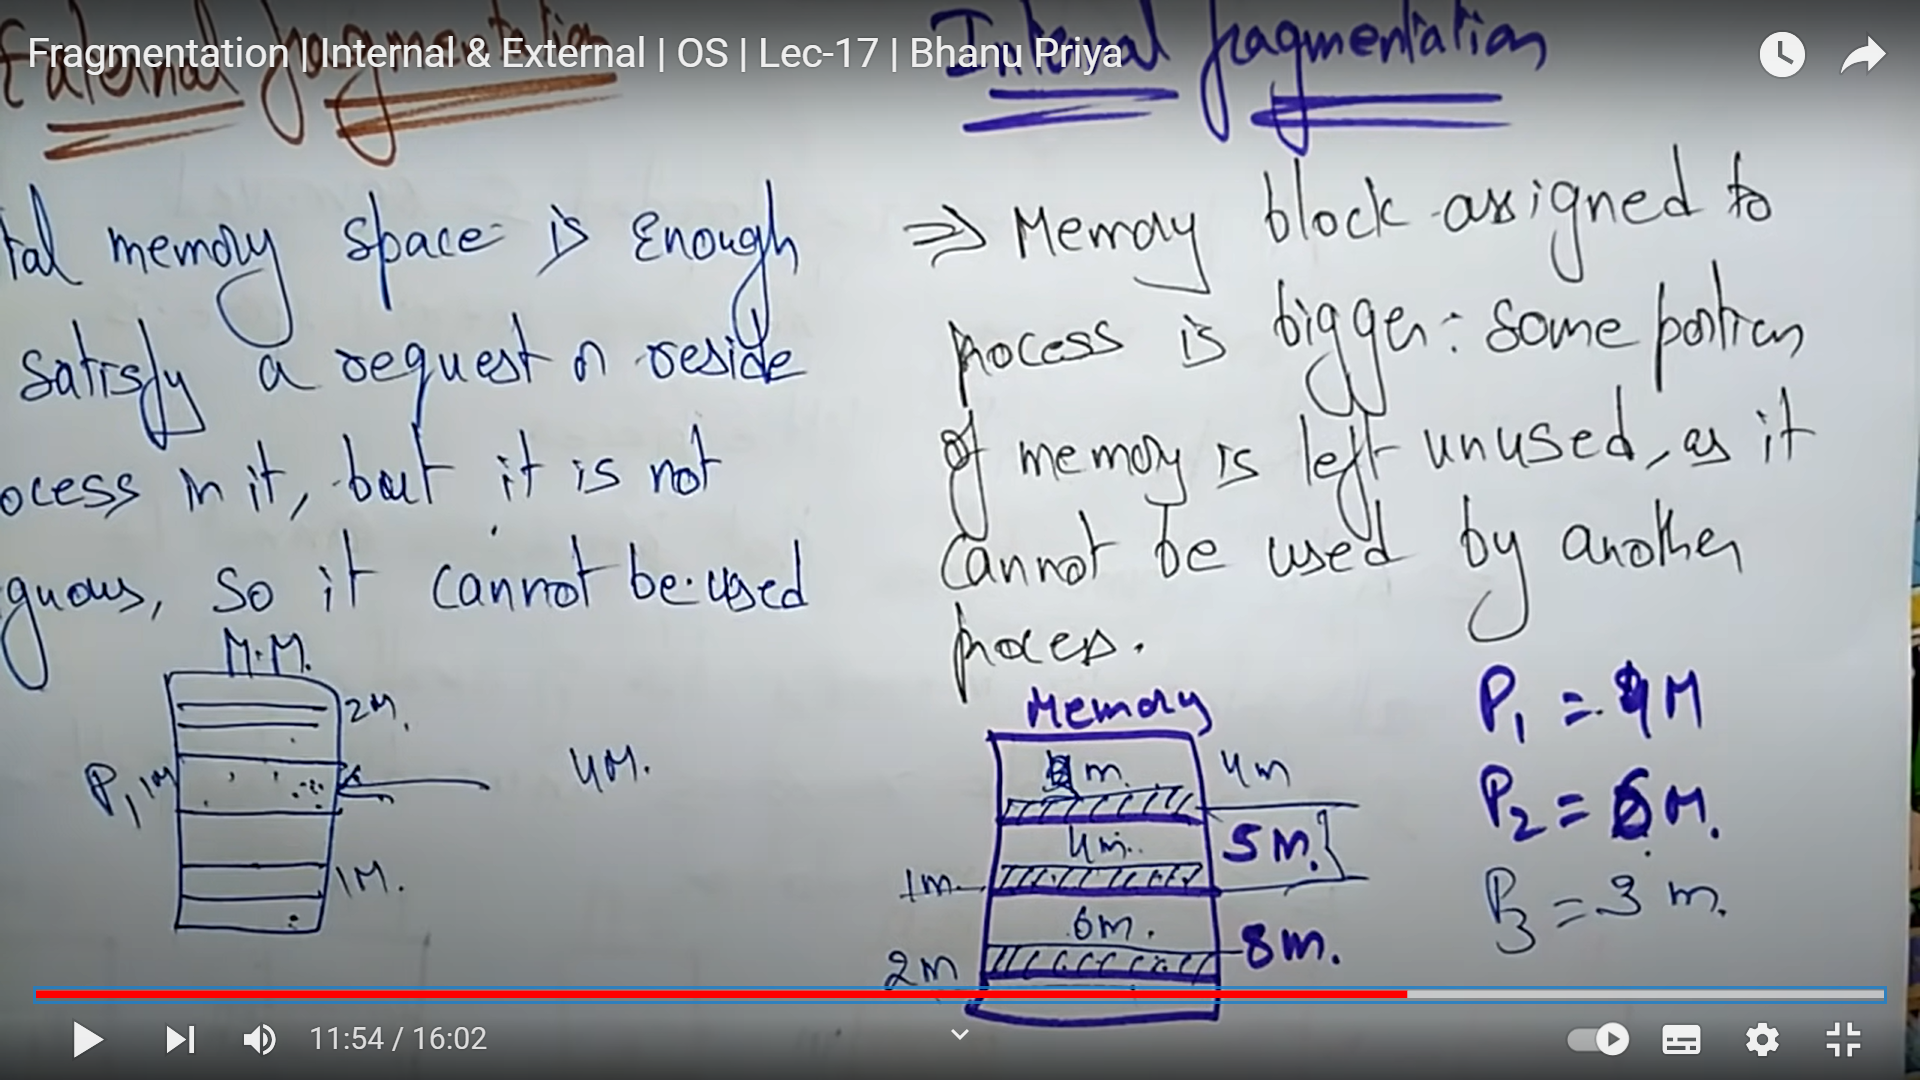 Fragmentation | Internal & External | OS | Lec-17 | Bhanu Priya
External fragmentation
tal memory space is Enough
satisfy a request or reside
ocess in it, but it is not
guous, so it cannot be used
M.M.
2M.
P1 1M
4M.
1M.
Internal fragmentation
⇒ Memory block assigned to
process is bigger: Some portion
of memory is left unused, as it
cannot be used by another
process.
Memory
m. 4m
4m. 5m.
1m
6m. 8m.
2m
P1 = 4M
P2 = 6M.
P3 = 3 m.
11:54 / 16:02